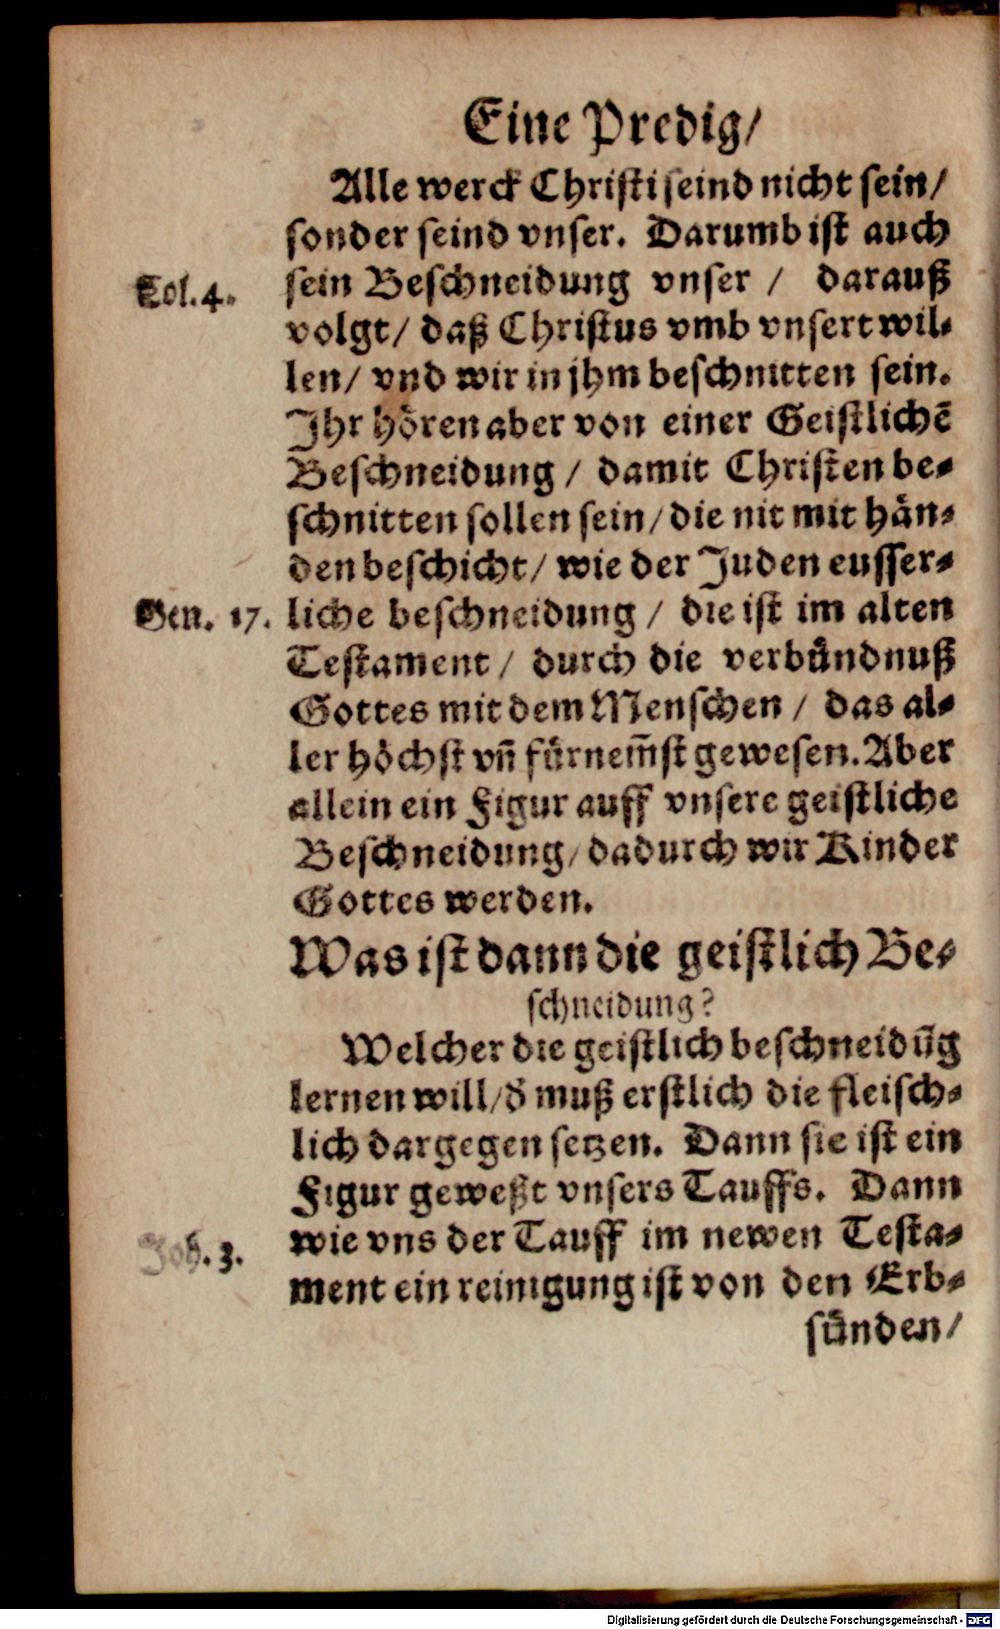 Eine Predig/
Alle werck Christi seind nicht sein/
sonder seind vnser. Darumb ist auch
Col. 4. sein Beschneidung vnser / darauß
volgt/ daß Christus vmb vnsert wil⸗
len/ vnd wir in jhm beschnitten sein.
Ihr hören aber von einer Geistlichē
Beschneidung / damit Christen be⸗
schnitten sollen sein/ die nit mit hän⸗
den beschicht/ wie der Juden eusser⸗
Gen. 17. liche beschneidung / die ist im alten
Testament / durch die verbündnuß
Gottes mit dem Menschen / das al⸗
ler höchst vñ fürnem̃st gewesen. Aber
allein ein Figur auff vnsere geistliche
Beschneidung/ dadurch wir Kinder
Gottes werden.
Was ist dann die geistlich Be⸗
schneidung?
Welcher die geistlich beschneidũg
lernen will/ d̄ muß erstlich die fleisch⸗
lich dargegen setzen. Dann sie ist ein
Figur geweßt vnsers Tauffs. Dann
Joh. 3. wie vns der Tauff im newen Testa⸗
ment ein reinigung ist von den Erb⸗
sünden/
Digitalisierung gefördert durch die Deutsche Forschungsgemeinschaft - DFG